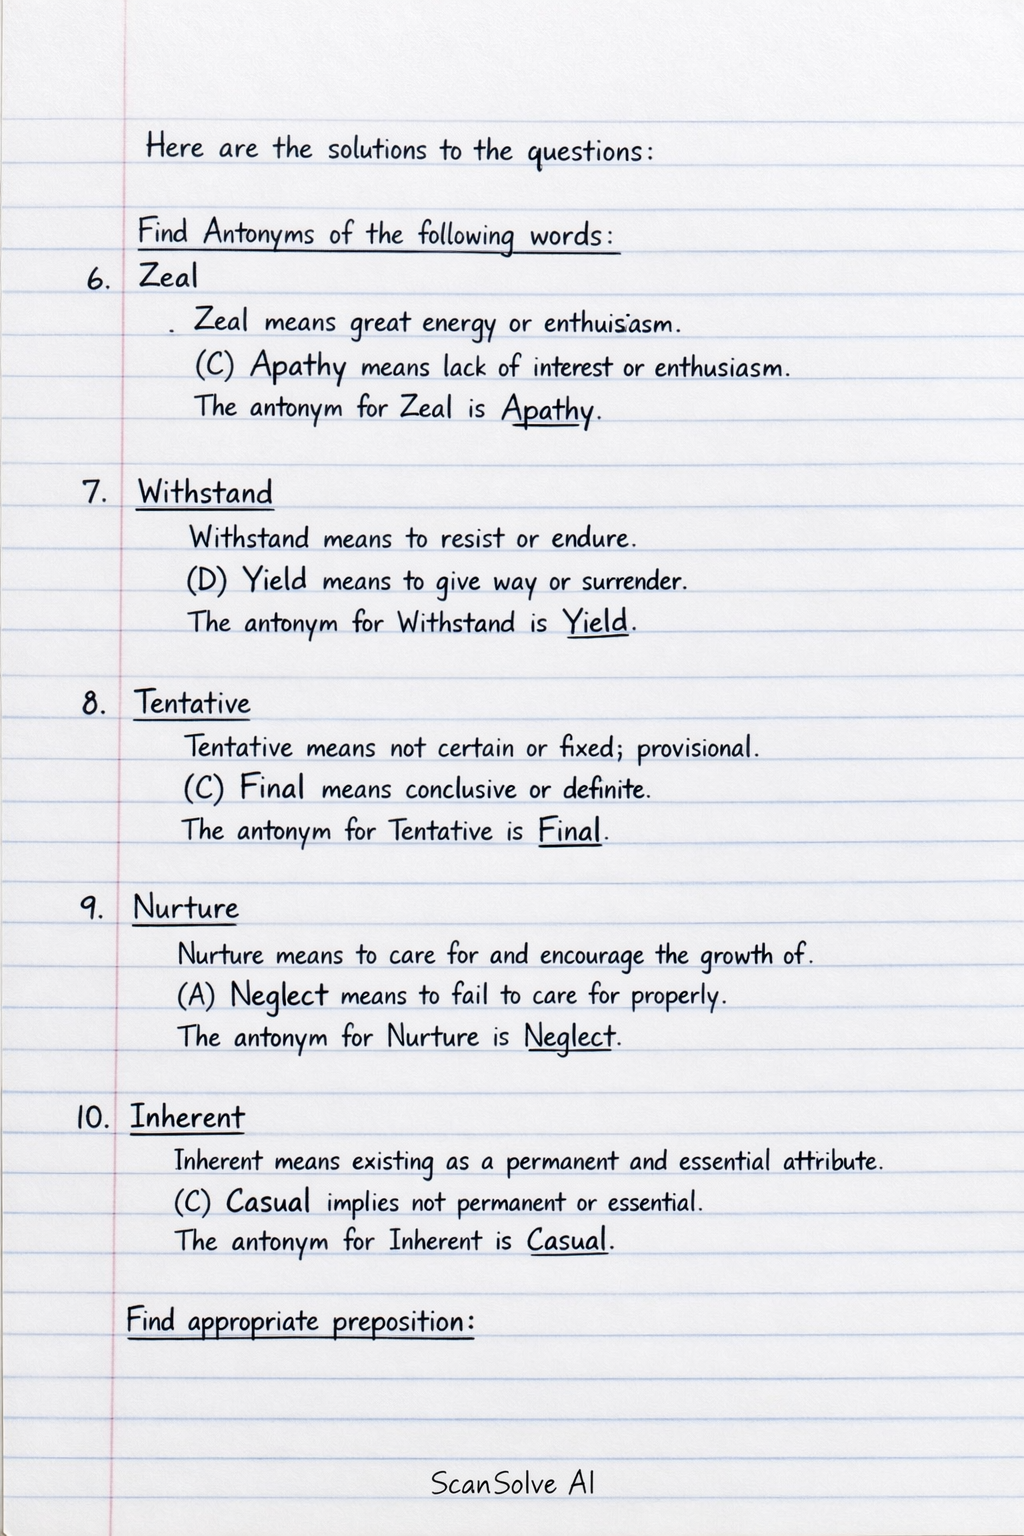 Here are the solutions to the questions:
Find Antonyms of the following words:
6. Zeal
. Zeal means great energy or enthuisiasm.
(C) Apathy means lack of interest or enthusiasm.
The antonym for Zeal is Apathy.
7. Withstand
Withstand means to resist or endure.
(D) Yield means to give way or surrender.
The antonym for Withstand is Yield.
8. Tentative
Tentative means not certain or fixed; provisional.
(C) Final means conclusive or definite.
The antonym for Tentative is Final.
9. Nurture
Nurture means to care for and encourage the growth of.
(A) Neglect means to fail to care for properly.
The antonym for Nurture is Neglect.
10. Inherent
Inherent means existing as a permanent and essential attribute.
(C) Casual implies not permanent or essential.
The antonym for Inherent is Casual.
Find appropriate preposition:
ScanSolve AI